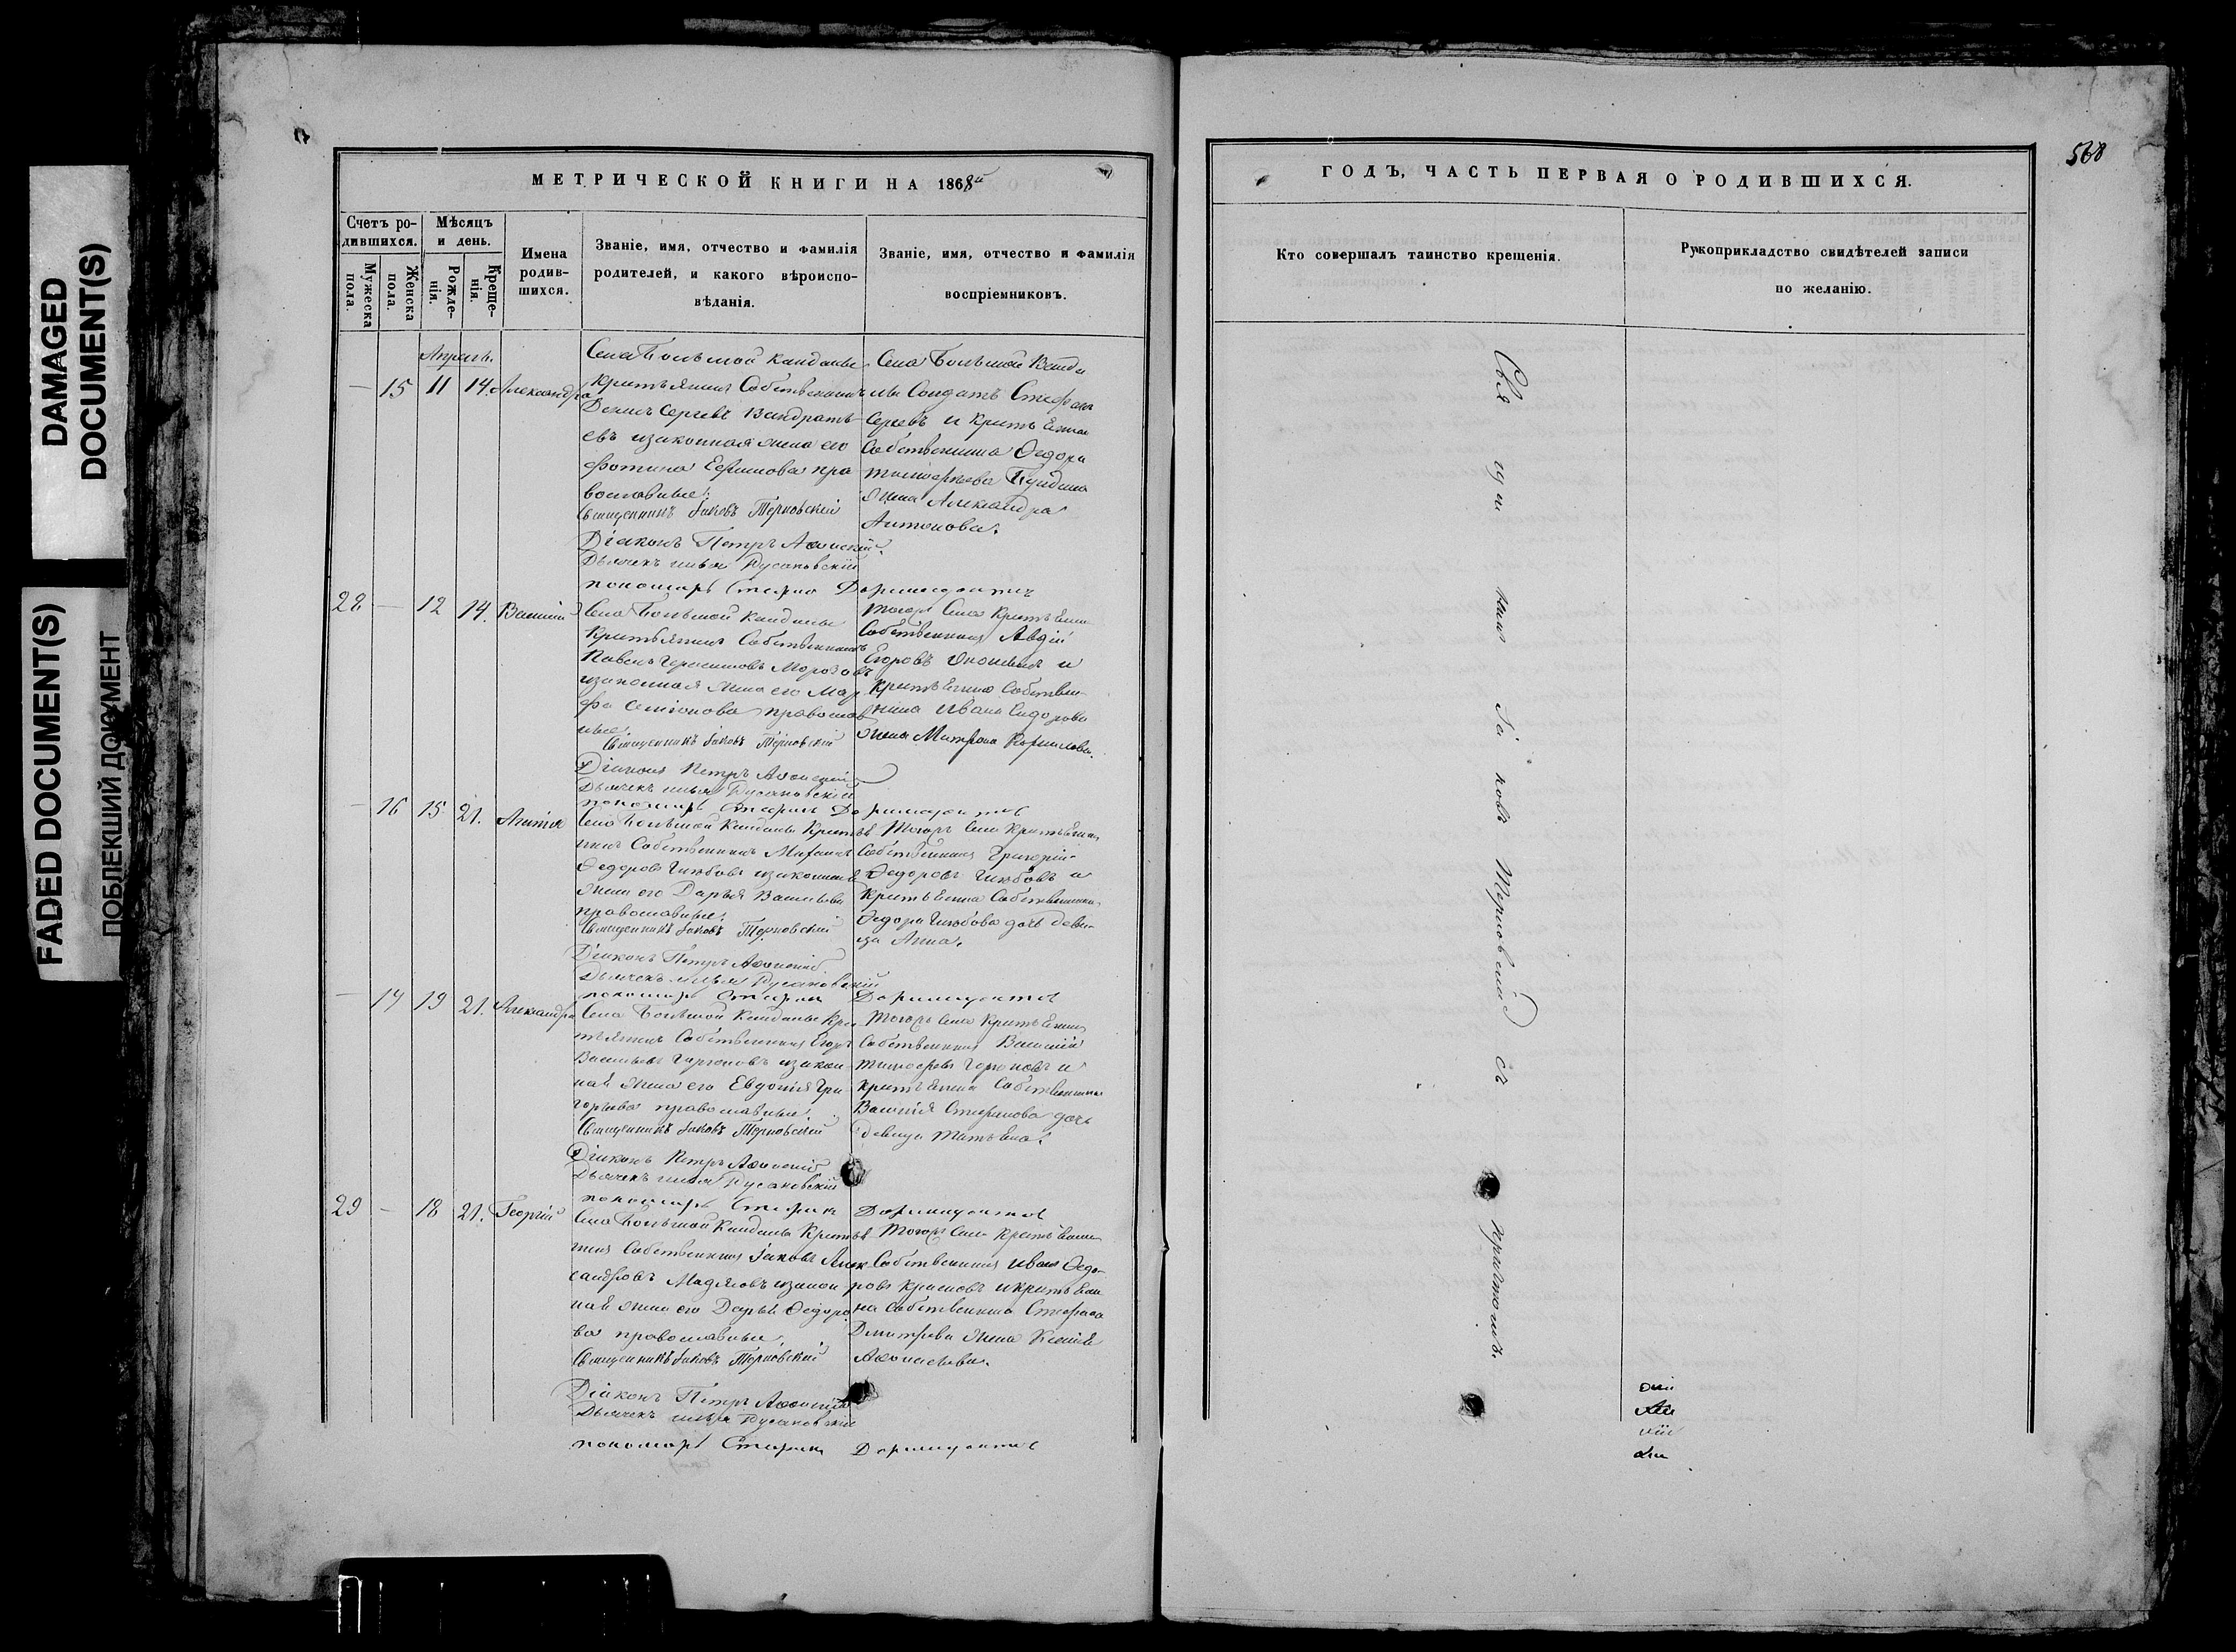 DAMAGED
DOCUMENT(S)
FADED DOCUMENT(S)
ПОБЛЕКШИЙ ДОКУМЕНТ
МЕТРИЧЕСКОЙ КНИГИ НА 1868й
Счетъ ро-
дившихся.
Мужеска
пола.
Женска
пола.
Мѣсяцъ
и день.
Рожде-
нія.
Креще-
нія.
Имена
родив-
шихся.
Званіе, имя, отчество и фамилія
родителей, и какого вѣроиспо-
вѣданія.
Званіе, имя, отчество и фамилія
воспріемниковъ.
Апрель.
15 11 14. Александра
Села Большой Канданы
Крестьянинъ Собственникъ
Сергевъ Кандрать-
евъ изаконная жена его
Фотина Ефимова пра
вославные.
Священникъ Іаковъ Терновскій
Діаконъ Петръ
Дьячекъ Илья Русановскій
пономарь Стефанъ Доримедонтовъ
Села Большой Канда
лы Солдатъ Стефанъ
Сергевъ и Крестьянина
Собственника Федора
Тимофеева
жена Александра
Антонова.
28 — 12 14. Василій
Села Большой Канданы
Крестьянинъ Собственникъ
Павелъ Герасимовъ Морозовъ
изаконная жена его Мар
фа Семіонова православ
ные.
Священникъ Іаковъ Терновскій
Діаконъ Петръ
Дьячекъ Илья Русановскій
пономарь Стефанъ Доримедонтовъ
Тогожъ Села Крестьянинъ
Собственникъ Авдій
Егоровъ и
Крестьянина Собствен-
ника Ивана Сидорова
жена Матрона Корнилова.
— 16 15 21. Агнія
Села Большой Канданы Крестья
нинъ Собственникъ Михаилъ
Федоровъ Глюбовъ изаконная
жена его Дарья Васильева
православные.
Священникъ Іаковъ Терновскій
Діаконъ Петръ
Дьячекъ Илья Русановскій
пономарь Стефанъ Доримедонтовъ
Тогожъ Села Крестьянинъ
Собственникъ Григорій
Федоровъ Глюбовъ и
Крестьянина Собственника
Федора Глюбова дочь деви-
ца Анна.
— 17 19 21. Александра
Села Большой Канданы Кре
стьянинъ Собственникъ Егоръ
Васильевъ Горюновъ изакон
ная жена его Евдокія Гри
горьева православные.
Священникъ Іаковъ Терновскій
Діаконъ Петръ
Дьячекъ Илья Русановскій
пономарь Стефанъ Доримедонтовъ
Тогожъ Села Крестьянинъ
Собственникъ Василій
Тимофеевъ Горюновъ и
Крестьянина Собственника
Василія Стефанова дочь
девица Татьяна.
29 — 18 21. Георгій
Села Большой Канданы Крестья
нинъ Собственникъ Іаковъ Алек
сандровъ изакон
ная жена его Дарья Федоро
ва православные.
Священникъ Іаковъ Терновскій
Діаконъ Петръ
Дьячекъ Илья Русановскій
пономарь Стефанъ Доримедонтовъ
Тогожъ Села Крестьянинъ
Собственникъ Иванъ Федо-
ровъ Красновъ и крестьяни
на собственника Стефана
Дмитріева жена Ксенія
Афонасьева.
ГОДЪ, ЧАСТЬ ПЕРВАЯ О РОДИВШИХСЯ.
568
Кто совершалъ таинство крещенія.
Рукоприкладство свидѣтелей записи
по желанію.
Свя щен никъ Іа ковъ Терновскій съ причтомъ.